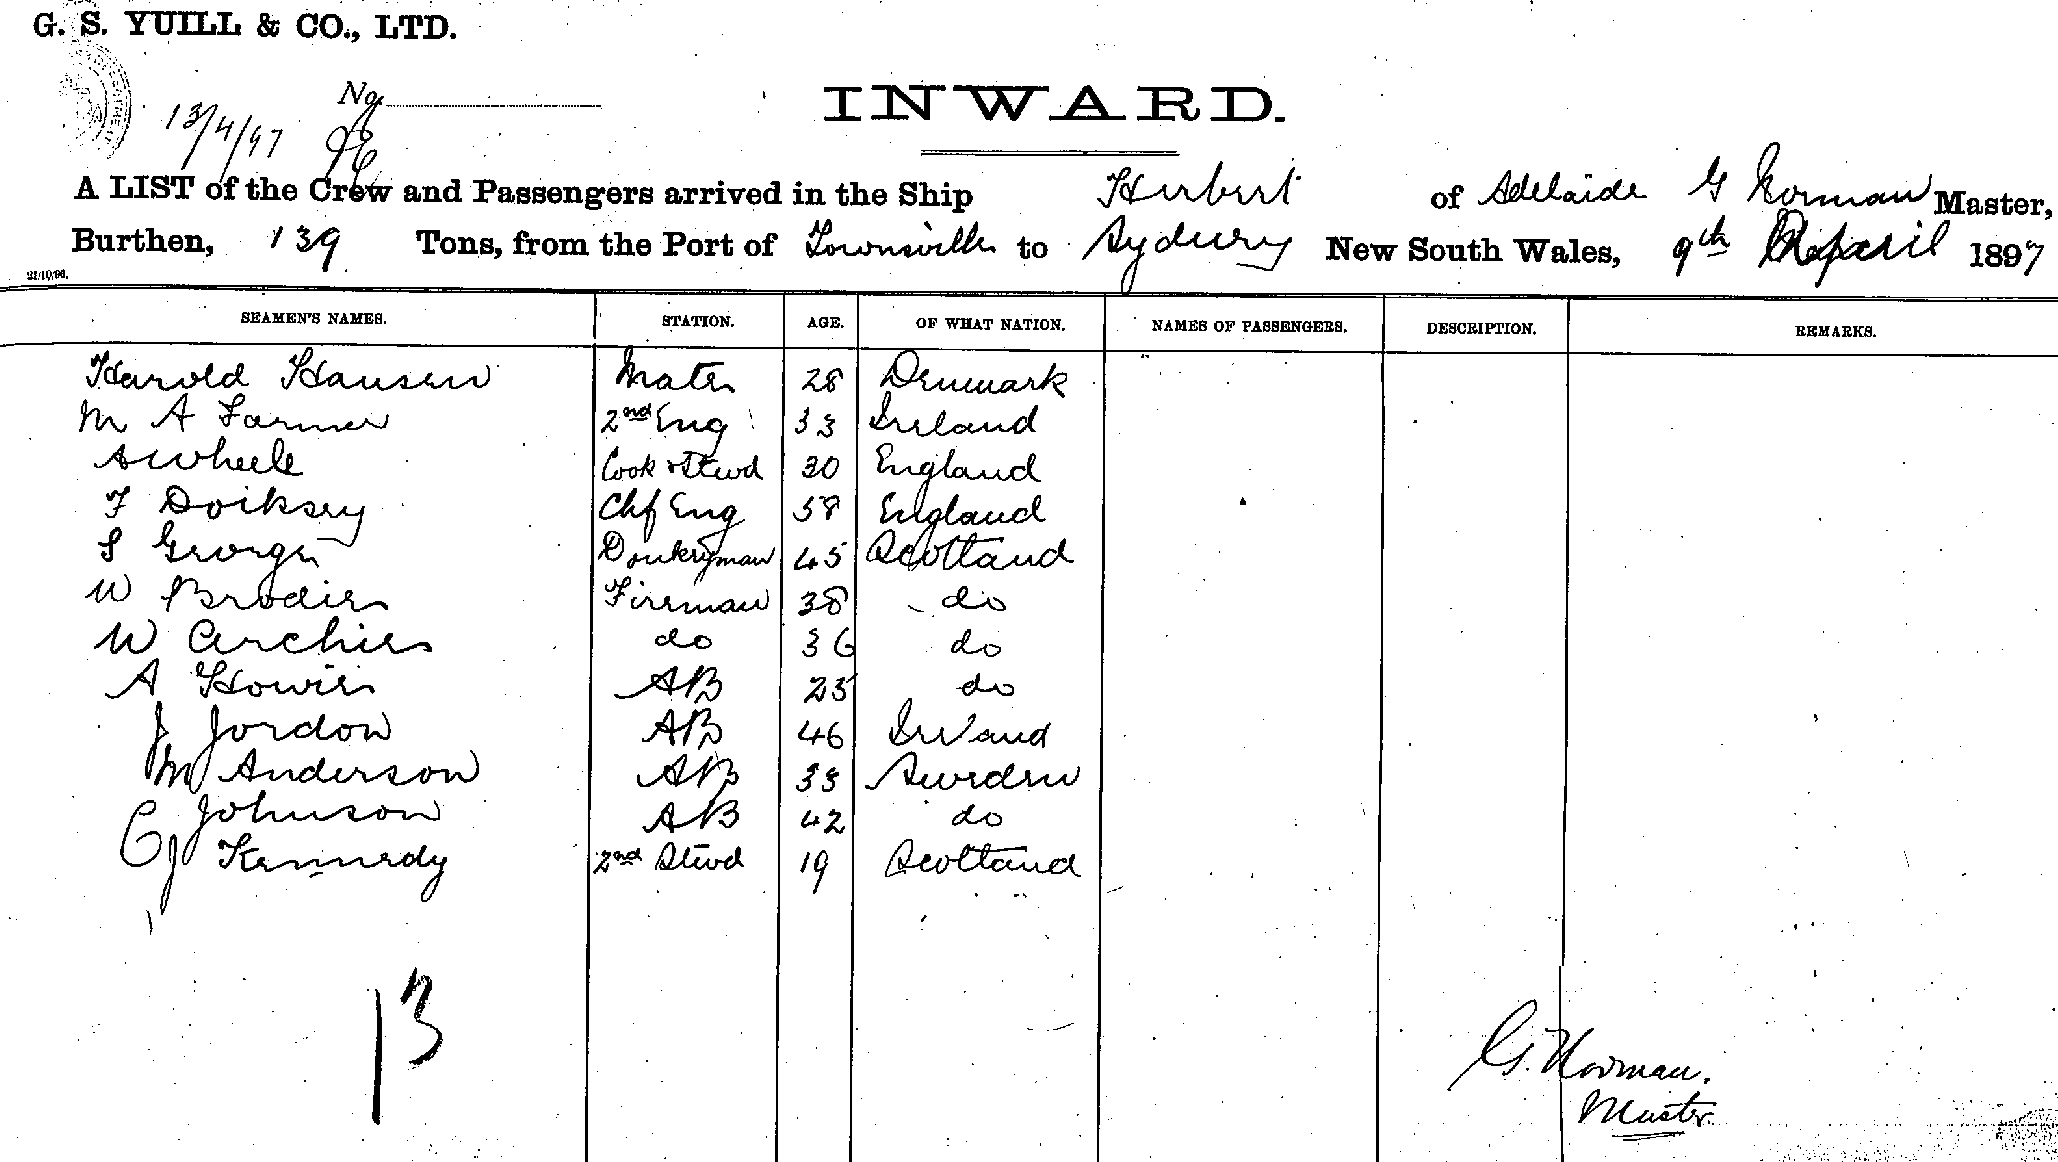 G. S. YUILL & CO., LTD.
No.
13/4/97
INWARD.
A LIST of the Crew and Passengers arrived in the Ship Herbert of Adelaide G Norman Master,
Burthen, 139 Tons, from the Port of Townsville to Sydney New South Wales, 9th April 1897
21/10/96.
SEAMEN'S NAMES. STATION. AGE. OF WHAT NATION. NAMES OF PASSENGERS. DESCRIPTION. REMARKS.
Harold Hansen Mate 28 Denmark
M A Farmer 2nd Eng 33 Ireland
A Wheele Cook & Stewd 30 England
F Doiksey Chf Eng 38 England
S George Donkeyman 45 Scotland
W Brodie Fireman 38 do
W Archie do 36 do
A Howie AB 25 do
J Jordon AB 46 Ireland
M Anderson AB 33 Sweden
C Johnson AB 42 do
J Kennedy 2nd Stewd 19 Scotland
13
G. Norman.
Master